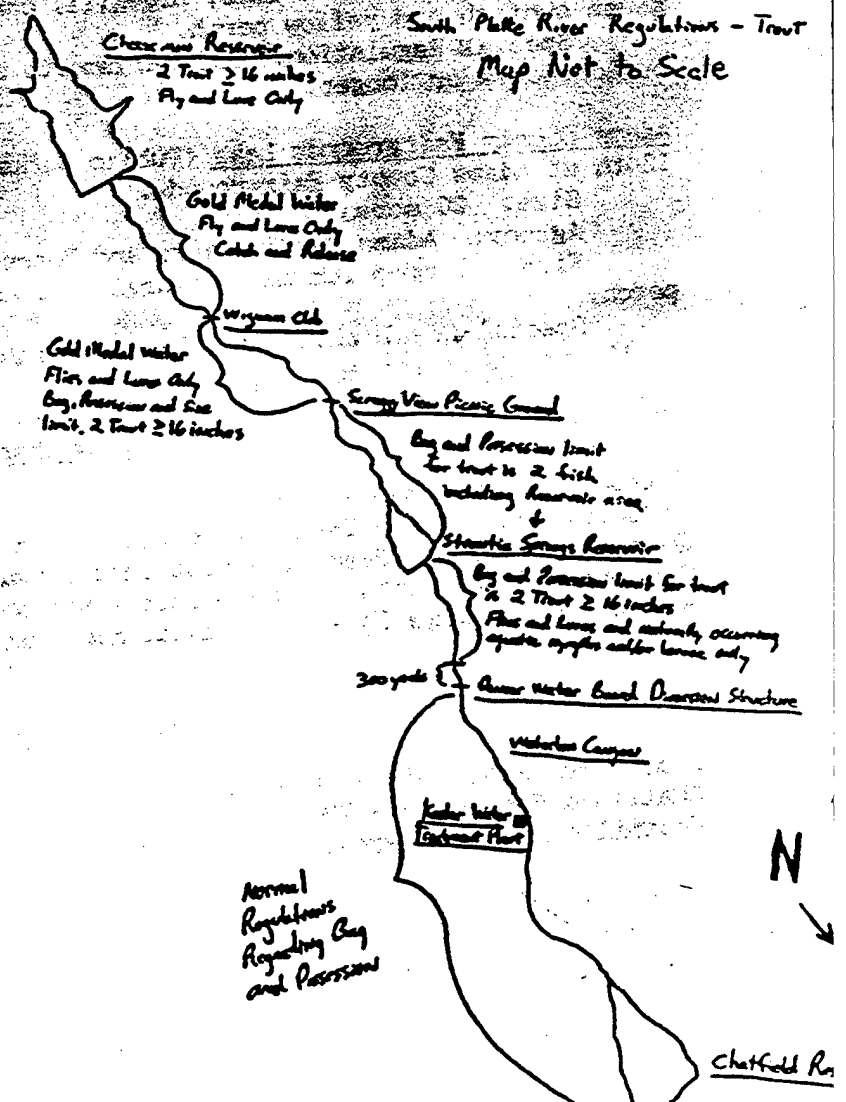 South Platte River Regulations - Trout
Map Not to Scale
Cheesman Reservoir
2 Trout ≥ 16 inches
Fly and Lure Only
Gold Medal Water
Fly and Lure Only
Catch and Release
Wigwam Club
Gold Medal Water
Flies and Lures Only
Bag, Possession and Size
limit, 2 Trout ≥ 16 inches
Scraggy View Picnic Ground
Bag and Posession limit
for trout is 2 fish
including Reservoir area
Strontia Springs Reservoir
Bag and Possession limit for trout
is 2 Trout ≥ 16 inches
Flies and Lures and naturally occurring
aquatic nymphs and/or larvae only
300 yards
Water Board Diversion Structure
Waterton Canyon
Water
Treatment Plant
Normal
Regulations
Regarding Bag
and Posession
N
Chatfield Res